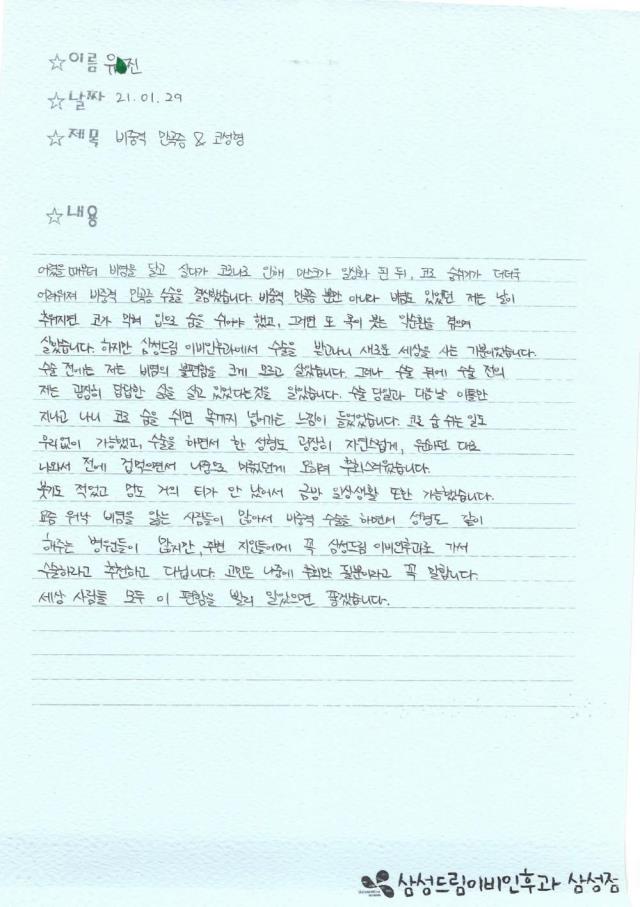 ☆이름 유 진
☆날짜 21.01.29
☆제목 비중격 만곡증 & 코성형
☆내용
어렸을때부터 비염을 달고 살다가 코로나로 인해 마스크가 일상화 된 뒤, 코로 숨쉬기가 더더욱
어려워져 비중격 만곡증 수술을 결심했습니다. 비중격 만곡증 뿐만 아니라 비염도 있었던 저는 날이
추워지면 코가 막혀 입으로 숨을 쉬어야 했고, 그러면 또 목이 붓는 악순환을 겪으며
살았습니다. 하지만 삼성드림 이비인후과에서 수술을 받고나니 새로운 세상을 사는 기분이었습니다.
수술 전에는 저는 비염의 불편함을 크게 모르고 살았습니다. 그러나 수술 뒤에 수술 전의
저는 굉장히 답답한 삶을 살고 있었다는것을 알았습니다. 수술 당일과 다음날 이틀만
지나고 나니 코로 숨을 쉬면 목까지 넘어가는 느낌이 들었었습니다. 코로 숨 쉬는 일도
무리없이 가능했고, 수술을 하면서 한 성형도 굉장히 자연스럽게, 원하던 대로
나와서 전에 겁먹으면서 나중으로 미뤘던게 오히려 후회스러웠습니다.
붓기도 적었고 멍도 거의 티가 안 났어서 금방 일상생활 또한 가능했습니다.
요즘 워낙 비염을 앓는 사람들이 많아서 비중격 수술을 하면서 성형도 같이
해주는 병원들이 많지만, 주변 지인들에게 꼭 삼성드림 이비인후과로 가서
수술하라고 추천하고 다닙니다. 고민은 나중에 후회만 될뿐이라고 꼭 말합니다.
세상 사람들 모두 이 편함을 빨리 알았으면 좋겠습니다.
삼성드림이비인후과 삼성점